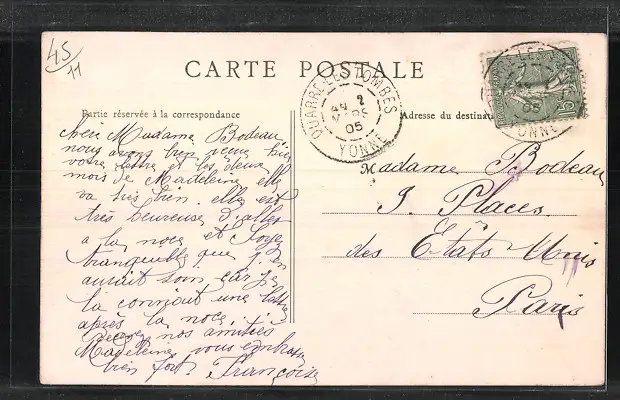 45
11
CARTE POSTALE
Partie réservée à la correspondance
Adresse du destinata
QUARRE-LES-TOMBES
2
MARS
05
YONNE
QUARRE-LES-
05
YONNE
15
Madame Bodeau
nous avons bien recu
votre lettre et les deux
mois de Madeleine elle
va très bien. elle est
très heureuse d'aller
a la noce et soyez
tranquille que j'en
aurait soin car je
la connait une lettre
après la noce.
recevez nos amitiés
Madeleine vous embrasse
bien fort. Françoise
Madame Bodeau
Places
des États Unis
Paris